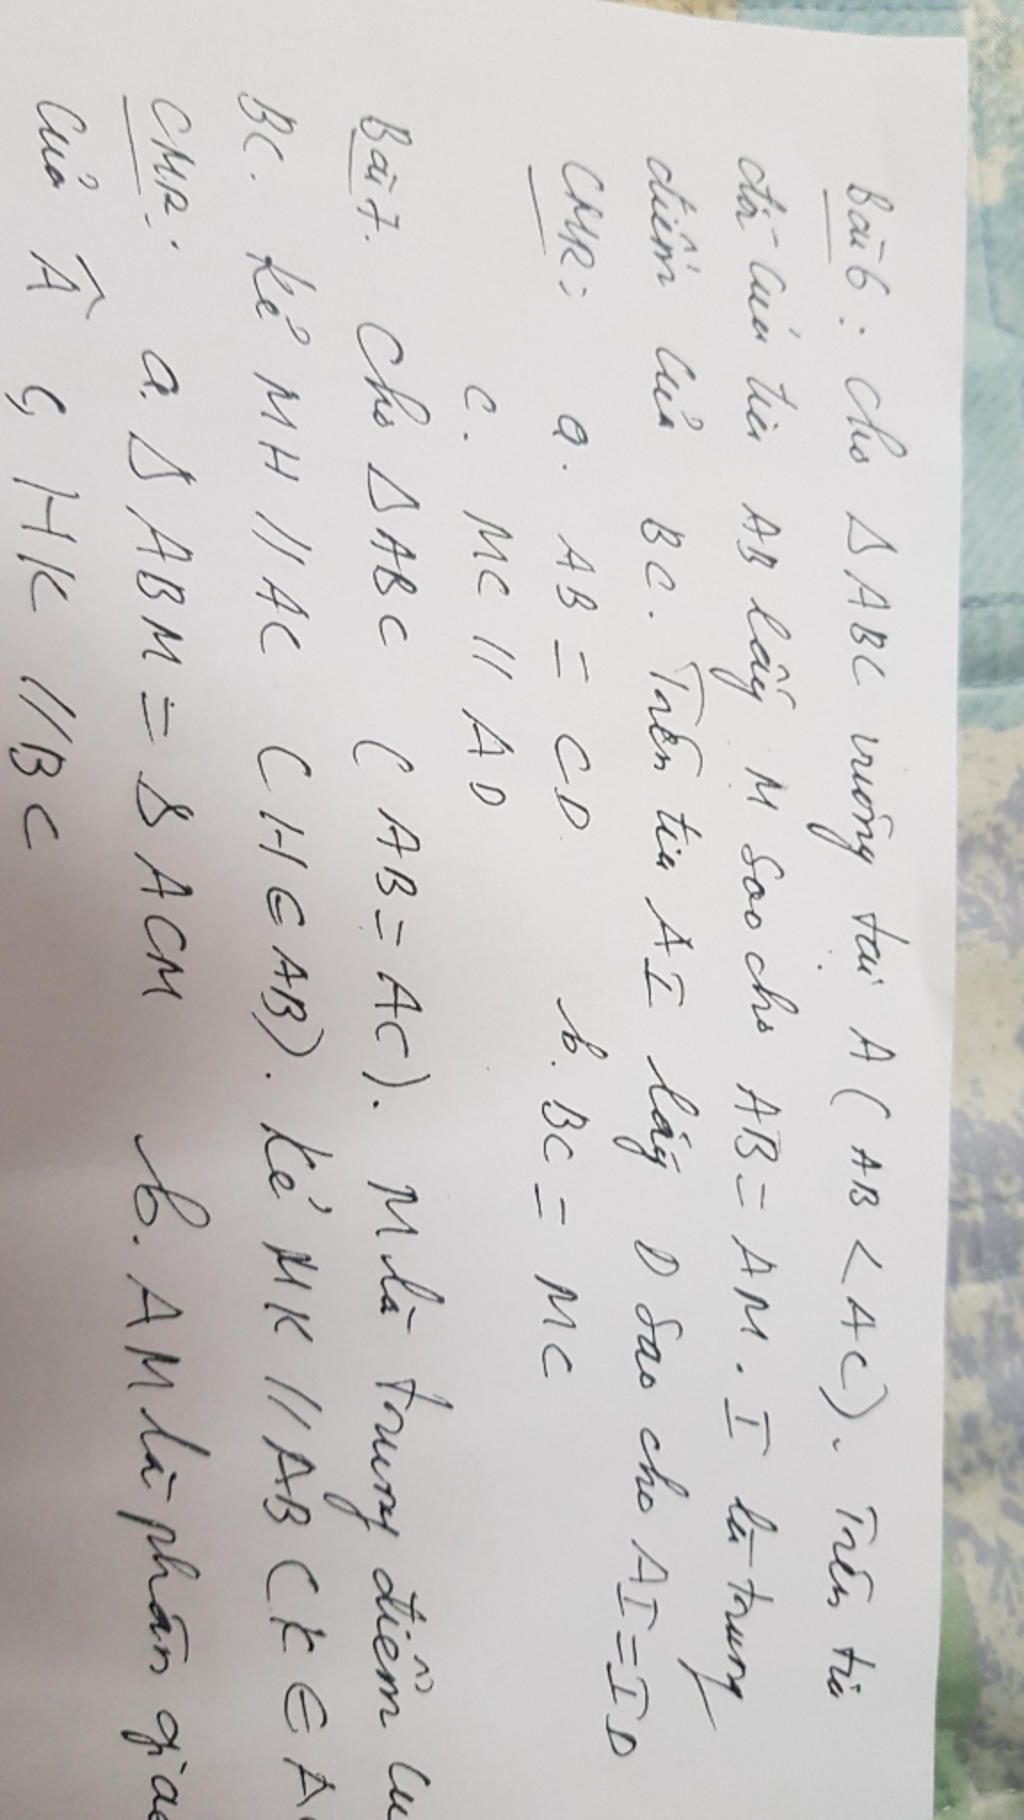 Bài 6: Cho Δ ABC vuông tại A ( AB < AC). Trên tia
đối của tia AB lấy M sao cho AB = AM. I là trung
điểm của BC. Trên tia AI lấy D sao cho AI = ID
CMR: a. AB = CD b. BC = MC
c. MC // AD
Bài 7. Cho Δ ABC ( AB = AC). M là trung điểm
BC. Kẻ MH // AC ( H ∈ AB). Kẻ MK // AB ( K ∈
CMR: a. Δ ABM = Δ ACM b. AM là phân
của Â c, HK // BC